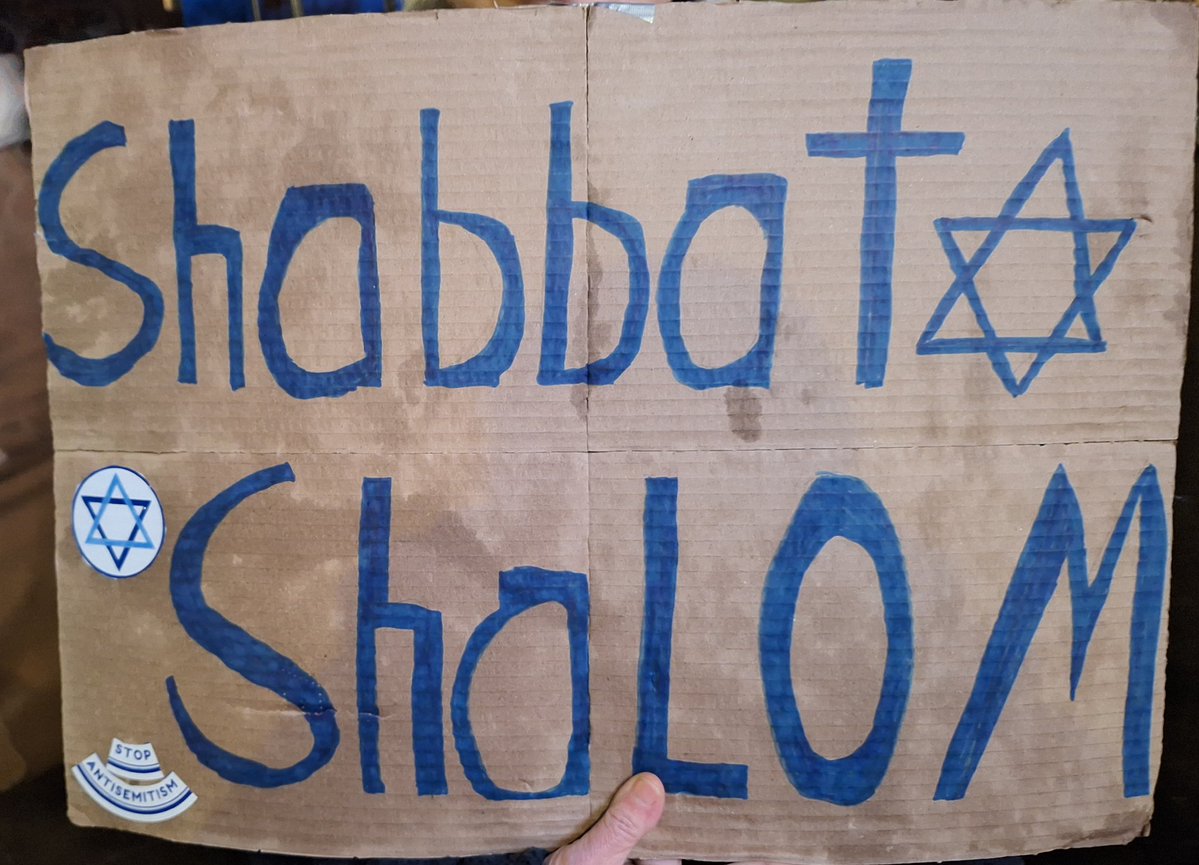 Shabbat
ShaLOM
STOP
ANTISEMITISM